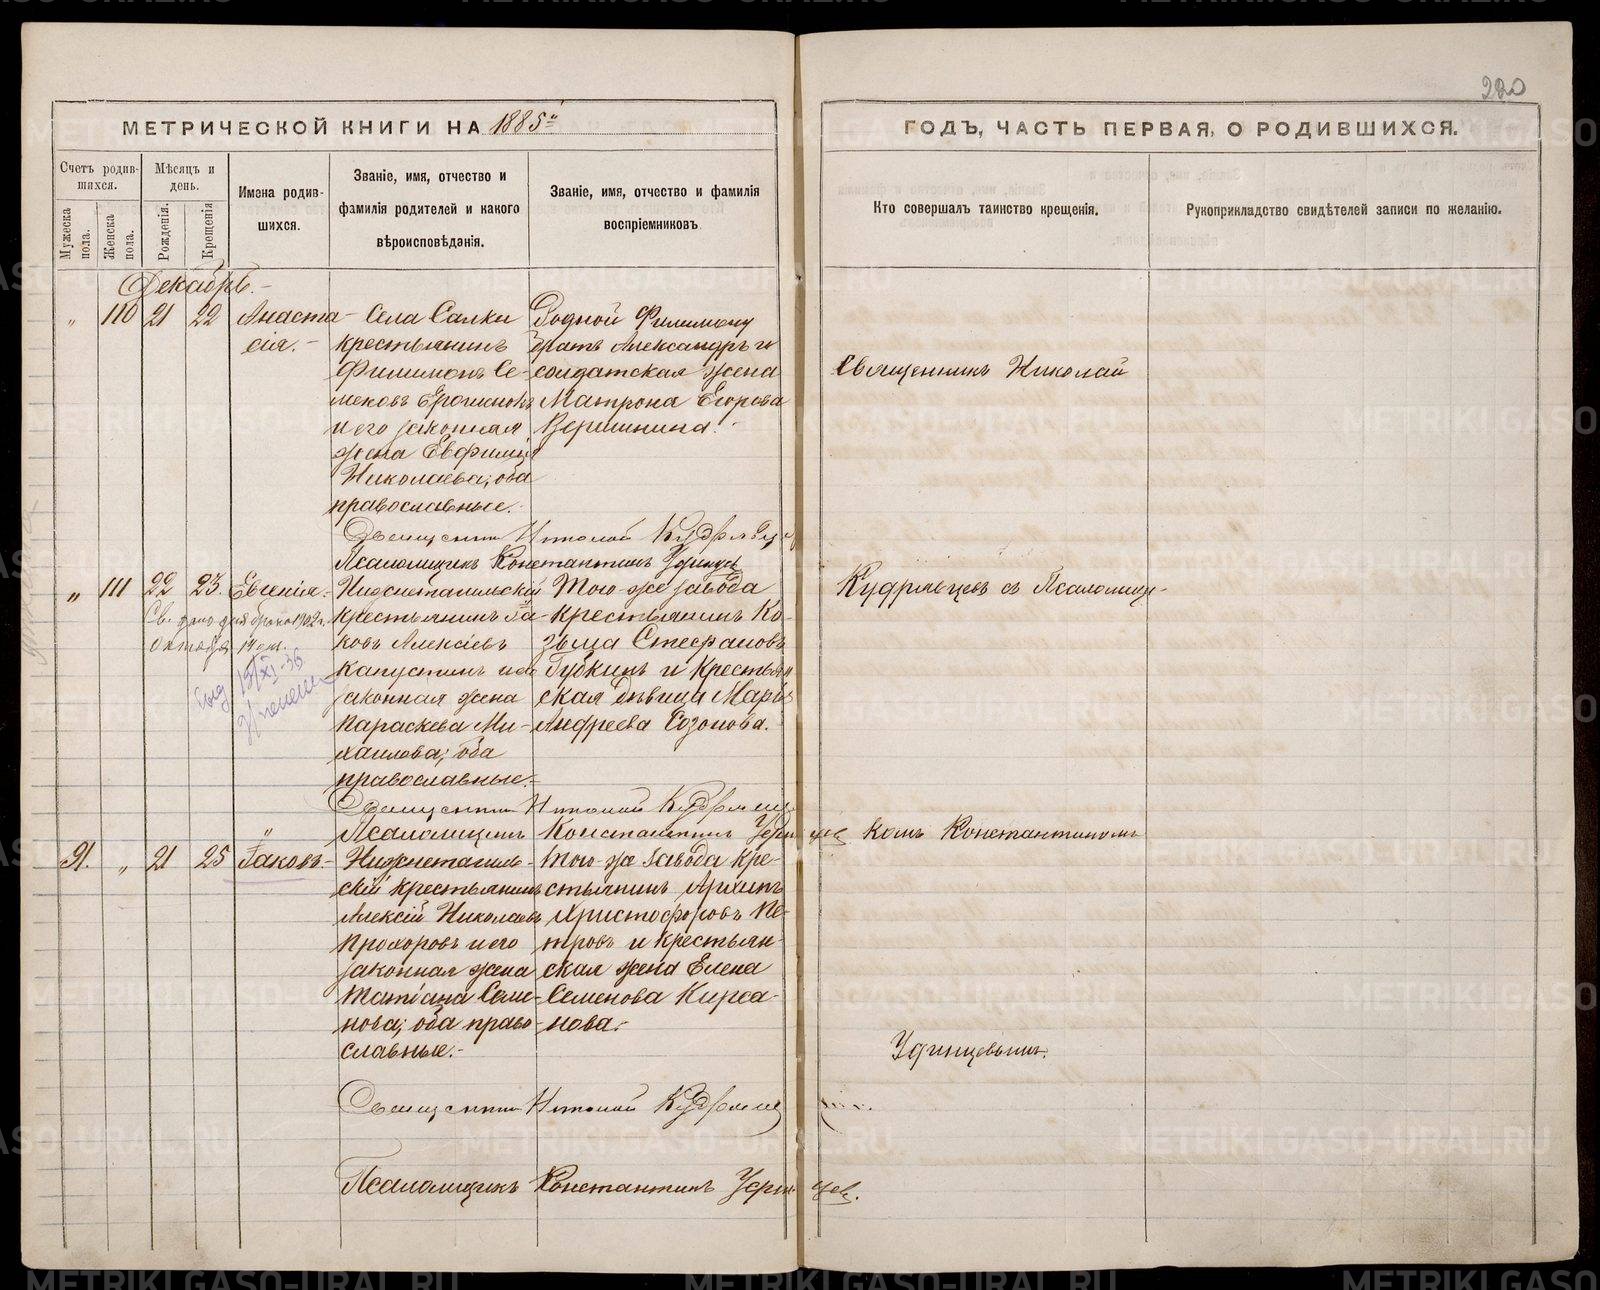 220
МЕТРИЧЕСКОЙ КНИГИ НА 1885й
ГОДЪ, ЧАСТЬ ПЕРВАЯ, О РОДИВШИХСЯ.
Счетъ родив-
шихся.
Мужеска пола.
Женска пола.
Мѣсяцъ и
день.
Рожденія.
Крещенія
Имена родив-
шихся.
Званіе, имя, отчество и
фамилія родителей и какого
вѣроисповѣданія.
Званіе, имя, отчество и фамилія
воспріемниковъ.
Кто совершалъ таинство крещенія.
Рукоприкладство свидѣтелей записи по желанію.
Декабрь.-
" 110 21 22 Анаста-
сія.-
Села Салки
крестьянинъ
Филимонъ Се-
меновъ
и его законная
жена Евфимія
Николаева, оба
православные.
Родной Филимону
братъ Александръ и
солдатская жена
Матрона Егорова
Вершинина.
Священникъ Николай
Священникъ Николай Кудрявцев
Псаломщикъ Константинъ Удинцев
" 111 22 23. Евгенія.
Нижнетагильскій
крестьянинъ Іа-
ковъ Алексіевъ
Капустинъ и его
законная жена
Параскева Ми-
хаилова; оба
православные.-
Того-же завода
крестьянинъ Ко-
зьма Стефановъ
Губкинъ и крестьян
ская дѣвица Марія
Андреева Созонова.
Кудрявцевъ съ Псаломщи-
октября 14 дня.
Священникъ Николай Кудрявцев
Псаломщикъ Константинъ Удинцев
комъ Константиномъ
91. " 21 25 Іаковъ-
Нижнетагиль-
скій крестьянинъ
Алексій Николаевъ
Прохоровъ и его
законная жена
Татіана Семе-
нова; оба право-
славные.-
Того-же завода кре-
стьянинъ Архипъ
Христофоровъ Пе-
тровъ и крестьян-
ская жена Елена
Семенова Кирса-
нова.-
Удинцевымъ.
Священникъ Николай Кудрявцев
Псаломщикъ Константинъ Удинцев.
METRIKI.GASO-URAL.RU